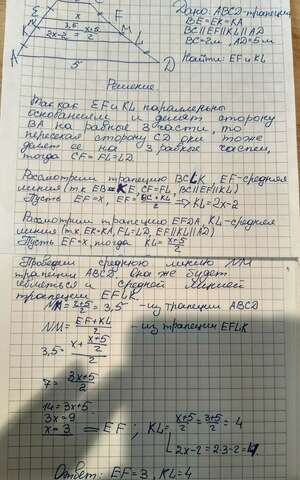 E x F
N 3,5 M
K 2x-2 = x+5/2 L
A 5 D
Дано: ABCD-трапеция
BE=EK=KA
BC||EF||KL||AD
BC=2м, AD=5м
Найти: EF и KL
Решение
Так как EF и KL параллельны
основаниям и делят сторону
BA на равные 3 части, то
пересекая сторону CD они тоже
делят ее на 3 равные части,
тогда CF=FL=LD.
Рассмотрим трапецию BCLK, EF-средняя
линия (т.к EB=KE, CF=FL, BC||EF||KL)
Пусть EF=x, EF=BC+KL/2 => KL=2x-2
Рассмотрим трапецию EFDA, KL-средняя
линия (т.к, EK=KA, FL=LD, EF||KL||AD)
Пусть EF=x, тогда KL=x+5/2
Проведем среднюю линию NM
трапеции ABCD. Она же будет
являться и средней линией
трапеции EFLK.
NM=2+5/2=3,5 -из трапеции ABCD
NM=EF+KL/2 -из трапеции EFLK
3,5= x+ x+5/2 /2
7= 3x+5/2
14=3x+5
3x=9
x=3 = EF; KL= x+5/2 = 3+5/2 = 4
2x-2=2·3-2=4
Ответ: EF=3, KL=4